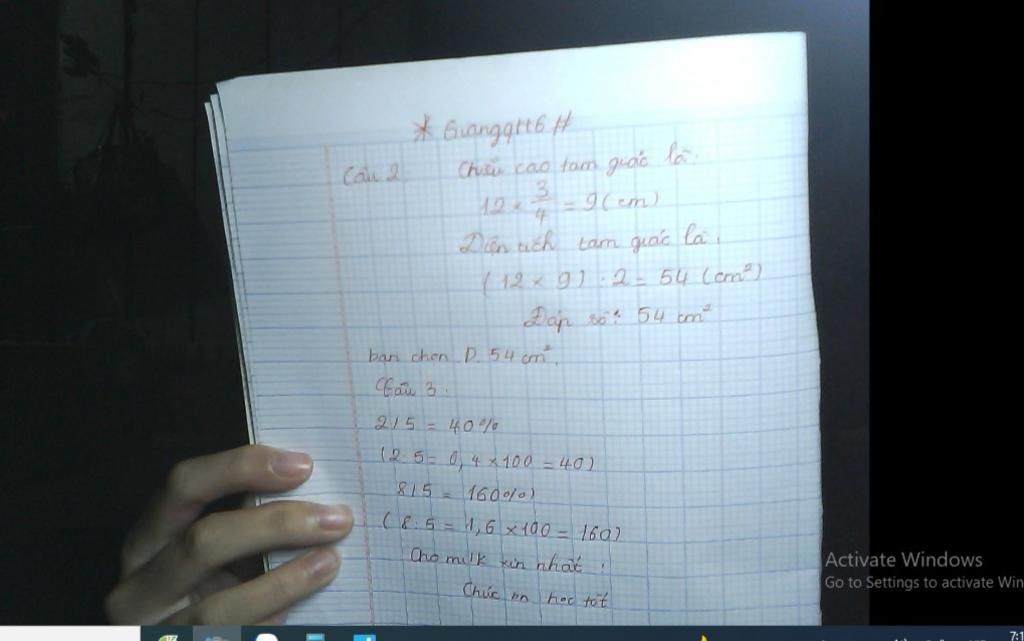 * Gvangqtt6 #
Câu 2 Chiều cao tam giác là:
12 × 3/4 = 9 (cm)
Diện tích tam giác là:
(12 × 9) : 2 = 54 (cm²)
Đáp số: 54 cm²
bạn chọn D. 54 cm².
Câu 3.
2/5 = 40%
(2:5 = 0,4 × 100 = 40)
8/5 = 160%)
(8:5 = 1,6 × 100 = 160)
Cho milk xin nhất !
Chúc bn học tốt
Activate Windows
Go to Settings to activate Win